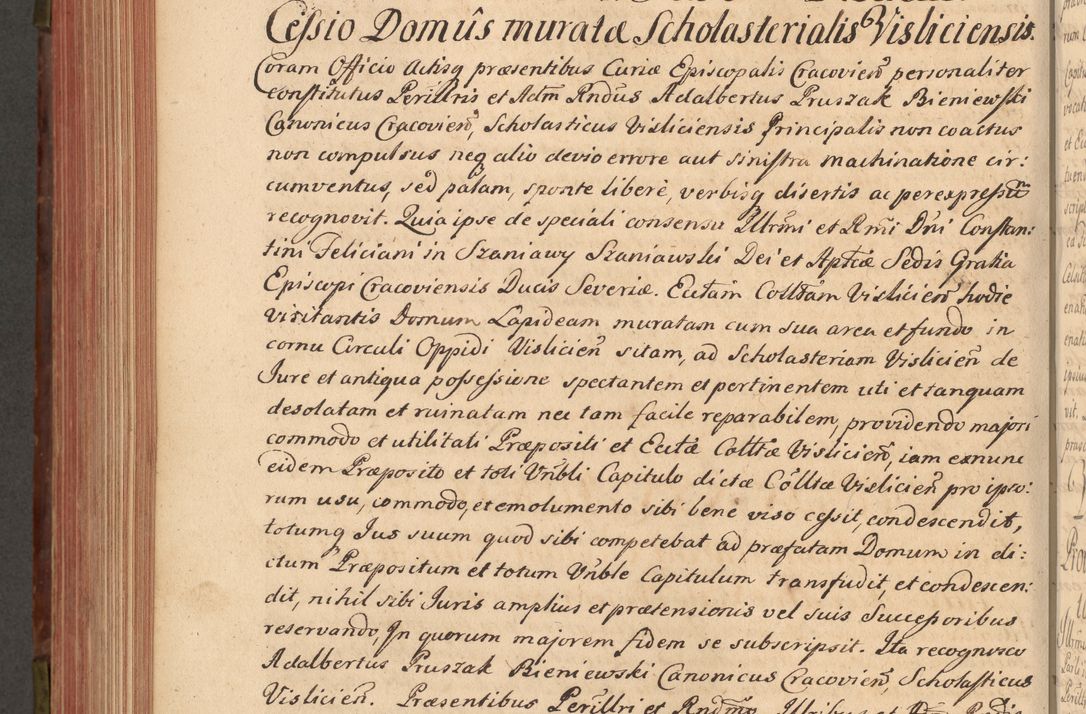 Cessio Domûs muratæ Scholasterialis Visliciensis.
Coram Officio Actisq præsentibus Curiæ Episcopalis Cracovien̄ personaliter
constitutus Perillris et Adm̄ Rndūs Adalbertus Pruszak Bieniewski
Canonicus Cracovien̄, Scholasticus Visliciensis Principalis non coactus
non compulsus neq alio devio errore aut sinistra machinatione cir:
cumventus, sed palam, sponte liberè, verbisq disertis ac perexpressū
recognovit. Quia ipse de speciali consensu Illrm̄i et Rm̄i Dn̄i Constan:
tini Feliciani in Szaniawy Szaniawski Dei et Aptcæ Sedis Gratia
Episcopi Cracoviensis Ducis Severiæ. Ecctam̄ Colltām Vislicien̄ hodie
visitantis Domum Lapideam muratam cum sua area et fundo in
cornu Circuli Oppidi Vislicien̄ sitam, ad Scholasteriam Vislicien̄ de
Jure et antiqua possessione spectantem et pertinentem uti et tanquam
desolatam et ruinatam nec tam facile reparabilem, providendo majori
commodo et utilitati Præpositi et Ecctæ Colltæ Vislicien̄, iam exnunc
eidem Præposito et toti Vn̄bli Capitulo dictæ Cōlltæ Vislicien̄ pro ipso:
rum usu, commodo, et emolumento sibi bene viso cessit, condescendit,
totumq Jus suum quod sibi competebat ad præfatam Domum in di:
ctum Præpositum et totum Vn̄ble Capitulum transfudit, et condescen:
dit, nihil sibi Juris amplius et prætensionis vel suis Successoribus
reservando, In quorum majorem fidem se subscripsit. Ita recognosco
Adalbertus Pruszak Bieniewski Canonicus Cracovien̄, Scholasticus
Vislicien̄. Præsentibus Perīllri et Rndm̄o